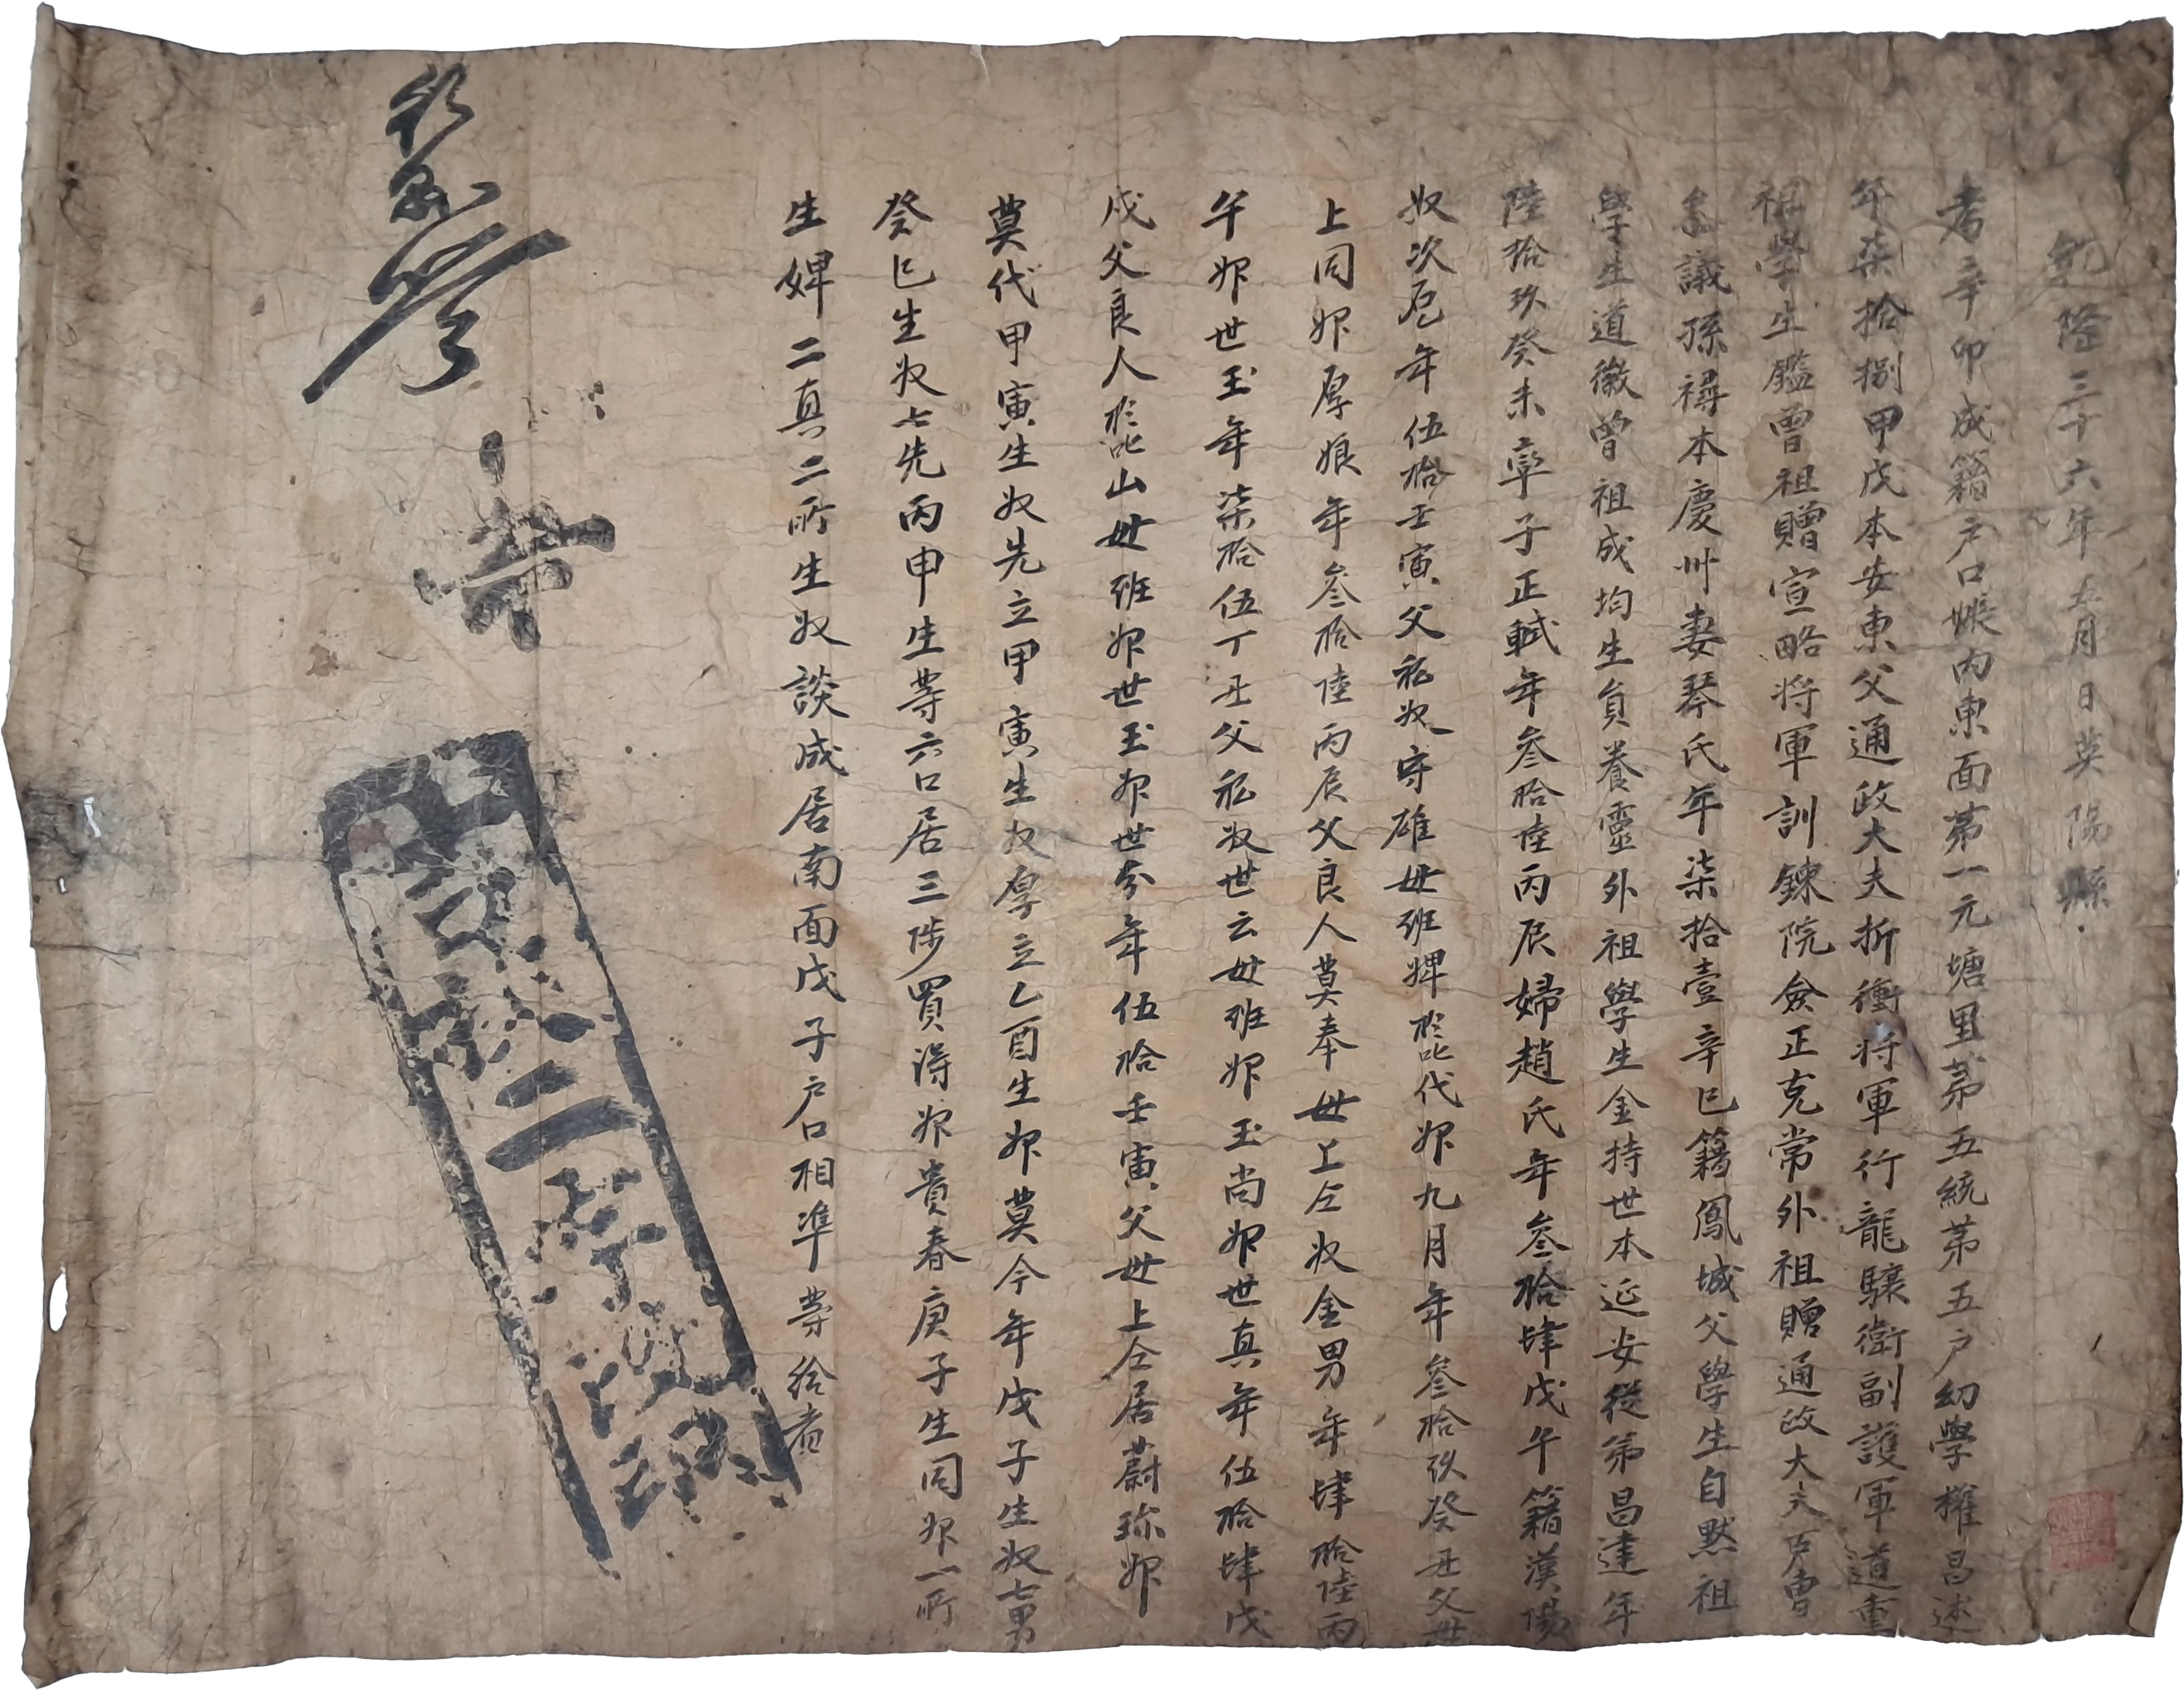 乾隆三十六年五月日英陽縣
考辛卯成籍戶口帳內東面第一元塘里第五統第五戶幼學權昌述
年柒拾捌甲戌本安東父通政大夫折衝將軍行龍驤衛副護軍道重
祖學生鑑曾祖贈宣略將軍訓鍊院僉正克常外祖贈通政大夫
議孫禫本慶州妻琴氏年柒拾壹辛巳籍鳳城父學生自黙祖
學生道徽曾祖成均生員養靈外祖學生金持世本延安從弟昌達年
陸拾玖癸未率子正軾年叁拾陸丙辰婦趙氏年叁拾肆戊午籍漢陽
奴次 年伍拾壬寅父私奴守碓母班婢於叱代婢九月年叁拾玖癸丑父世
上同婢厚娘年叁拾陸丙辰父良人莫奉母上仝奴金男年肆拾陸丙
午婢世玉年柒拾伍丁丑父私奴世云母班婢玉尚婢世真年伍拾肆戊
戌父良人於叱山母班婢世玉婢世分年伍拾壬寅父母上仝居蔚珍婢
莫代甲寅生奴先立甲寅生奴厚立乙酉生婢莫今年戊子生奴七男
癸巳生奴七先丙申生等六口居三陟買得婢貴春庚子生同婢一所
生婢二真二所生奴談成居南面戊子戶口相準等給者
行縣